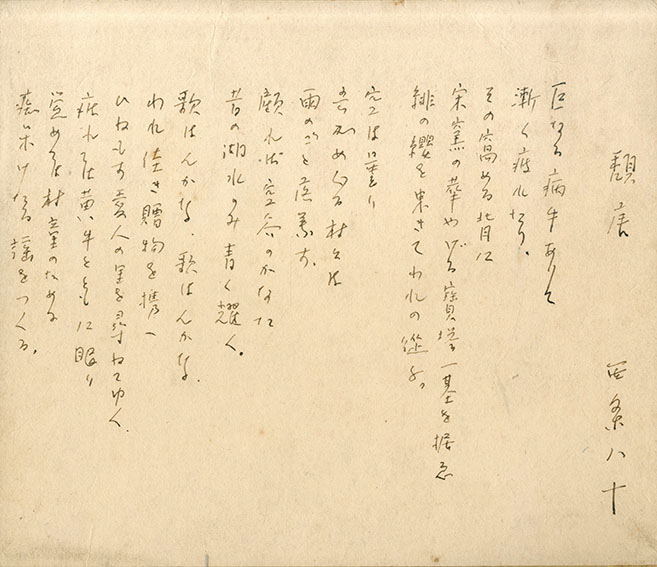 頽唐
西条八十
巨なる病牛ありて
漸く疲れたり、
その高める背に
宋窯の華やげる寶塔一基を据ゑ
緋の纓を曳きてわれの遊ぶ。
空は曇り
村々は
雨のごと落葉す、
顧れば空谷のかなた
昔の湖水のみ青く耀く。
歌はんかな、歌はんかな、
われ佳き贈物を携へ
ひねもす愛人の里を尋ねてゆく、
疲れては黄牛とともに眠り
覚めては村童のために
なる謡をつくる。